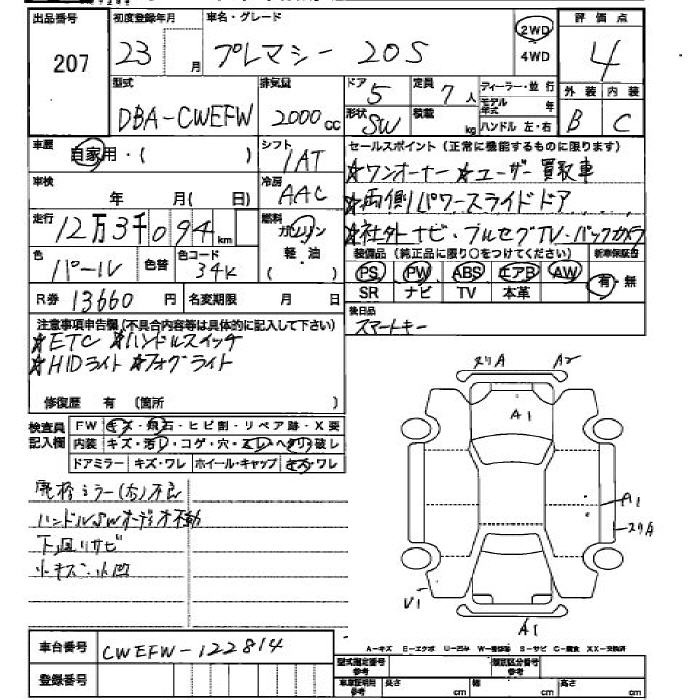 出品番号
207
初度登録年月
23 月
車名・グレード
プレマシー 20S
2WD
4WD
評価点
4
外装 内装
B C
型式
DBA-CWEFW
排気量
2000cc
ドア
5
定員
7人
形状
SW
積載
kg
ディーラー・並行
モデル年式 年
ハンドル 左・右
車歴
自家用・( )
シフト
IAT
セールスポイント(正常に機能するものに限ります)
☆ワンオーナー ☆ユーザー買取車
☆両側パワースライドドア
☆社外ナビ・フルセグTV・バックカメラ
車検
年 月( 日)
冷房
AAC
走行
12万3千094km
燃料
ガソリン
軽・油
( )
色
パール
色替
色コード
34K
装備品(純正品に限り○をつけてください)
新車保証書
PS PW ABS エアB AW
SR ナビ TV 本革
有・無
R券 13660円
名変期限 月 日
後日品
スマートキー
注意事項申告欄(不具合内容等は具体的に記入して下さい)
☆ETC ☆ハンドルスイッチ
☆HIDライト ☆フォグライト
修復歴 有 (箇所 )
検査員記入欄
FW キズ・飛石・ヒビ割・リペア跡・X要
内装 キズ・汚レ・コゲ・穴・スレ・ヘタリ・破レ
ドアミラー キズ・ワレ ホイール・キャップ キズ・ワレ
ミラー(右)不良
ハンドルSWオーディオ不動
下廻りサビ
小キズ 小凹
A2
A1
A1
V1
A1
車台番号
CWEFW-122814
登録番号
A-キズ E-エクボ U-凹み W-補修跡 S-サビ C-腐食 XX-交換済
型式指定番号
参考
類別区分番号
参考
車庫証明用
参考
長さ cm
幅 cm
高さ cm